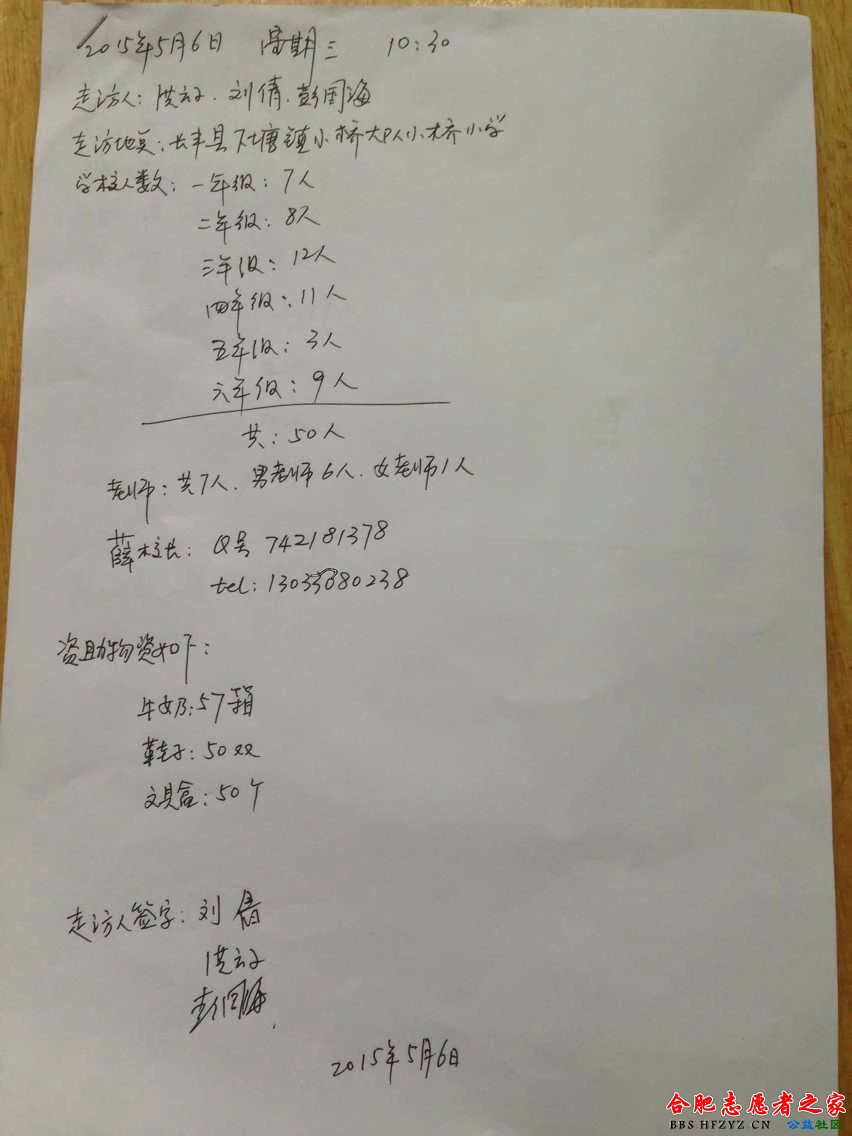 2015年5月6日 星期三 10:30
走访人：洪云子、刘倩、彭国海
走访地点：长丰县下塘镇小桥大队小桥小学
学校人数：一年级：7人
二年级：8人
三年级：12人
四年级：11人
五年级：3人
六年级：9人
共：50人
老师：共7人、男老师6人、女老师1人
薛校长：Q号 742181378
tel：
资助物资如下：
牛奶：57箱
鞋子：50双
文具盒：50个
走访人签字：刘倩
洪云子
彭国海
2015年5月6日
合肥志愿者之家
BBS.HFZYZ.CN 公益社区